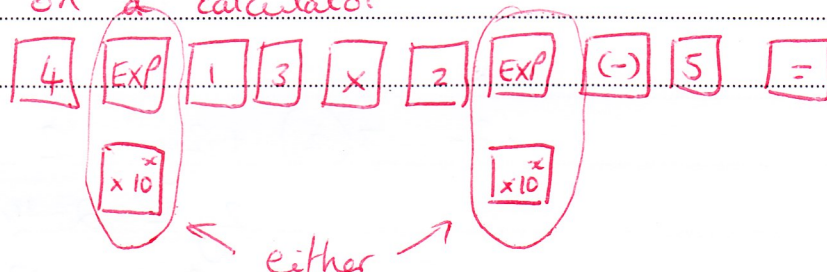 on a calculator
4 EXP 1 3 x 2 EXP (-) 5 =
x 10^x x 10^x
either